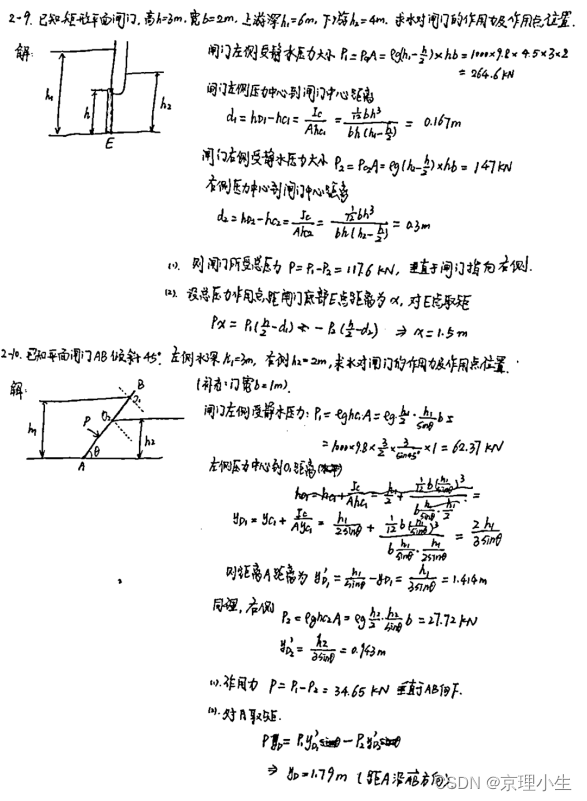 2-9. 已知矩形平面闸门, 高h=3m, 宽b=2m, 上游深h₁=6m, 下游h₂=4m. 求水对闸门的作用力及作用点位置.
解:
h₁
h
h₂
E
闸门左侧受静水压力大小 P₁=P₀A=ρg(h₁-h/2)×hb=1000×9.8×4.5×3×2
=264.6kN
闸门左侧压力中心到闸门中心距离
d₁=hD₁-hC₁=Ic/Ahc₁=(1/12 bh³)/(bh(h₁-h/2))=0.167m
闸门右侧受静水压力大小 P₂=Pc₂A=ρg(h₂-h/2)×hb=147kN
右侧压力中心到闸门中心距离
d₂=hD₂-hC₂=Ic/Ahc₂=(1/12 bh³)/(bh(h₂-h/2))=0.3m
(1). 则闸门所受总压力 P=P₁-P₂=117.6 KN, 垂直于闸门指向右侧.
(2). 设总压力作用点距闸门底部E点距离为x, 对E点取矩
Px=P₁(h/2-d₁)-P₂(h/2-d₂) ⇒ x=1.5m
2-10. 已知平面闸门AB倾斜45°. 左侧水深h₁=3m, 右侧h₂=2m, 求水对闸门的作用力及作用点位置.
(补充:门宽b=1m).
解:
B
O₁
O₂
h₁
P
h₂
θ
A
闸门左侧受静水压力: P₁=ρghc₁A=ρg h₁/2·h₁/sinθ b
=1000×9.8×3/2×3/sin45°×1=62.37KN
左侧压力中心到O₁距离
hD₁=hc₁+Ic/Ahc₁=h₁/2+
yD₁=yc₁+Ic/Ayc₁=h₁/2sinθ+(1/12 b(h₁/sinθ)³)/(b h₁/sinθ·h₁/2sinθ)=2h₁/3sinθ
则距离A距离为 y'D₁=h₁/sinθ-yD₁=h₁/3sinθ=1.414m
同理, 右侧
P₂=ρghc₂A=ρg h₂/2·h₂/sinθ b=27.72KN
y'D₂=h₂/3sinθ=0.943m
(1). 作用力 P=P₁-P₂=34.65KN 垂直于AB向下.
(2). 对A取矩.
PyD=P₁y'D₁sinθ-P₂y'D₂sinθ
⇒ yD=1.79m (距A沿AB方向)
CSDN @京理小生